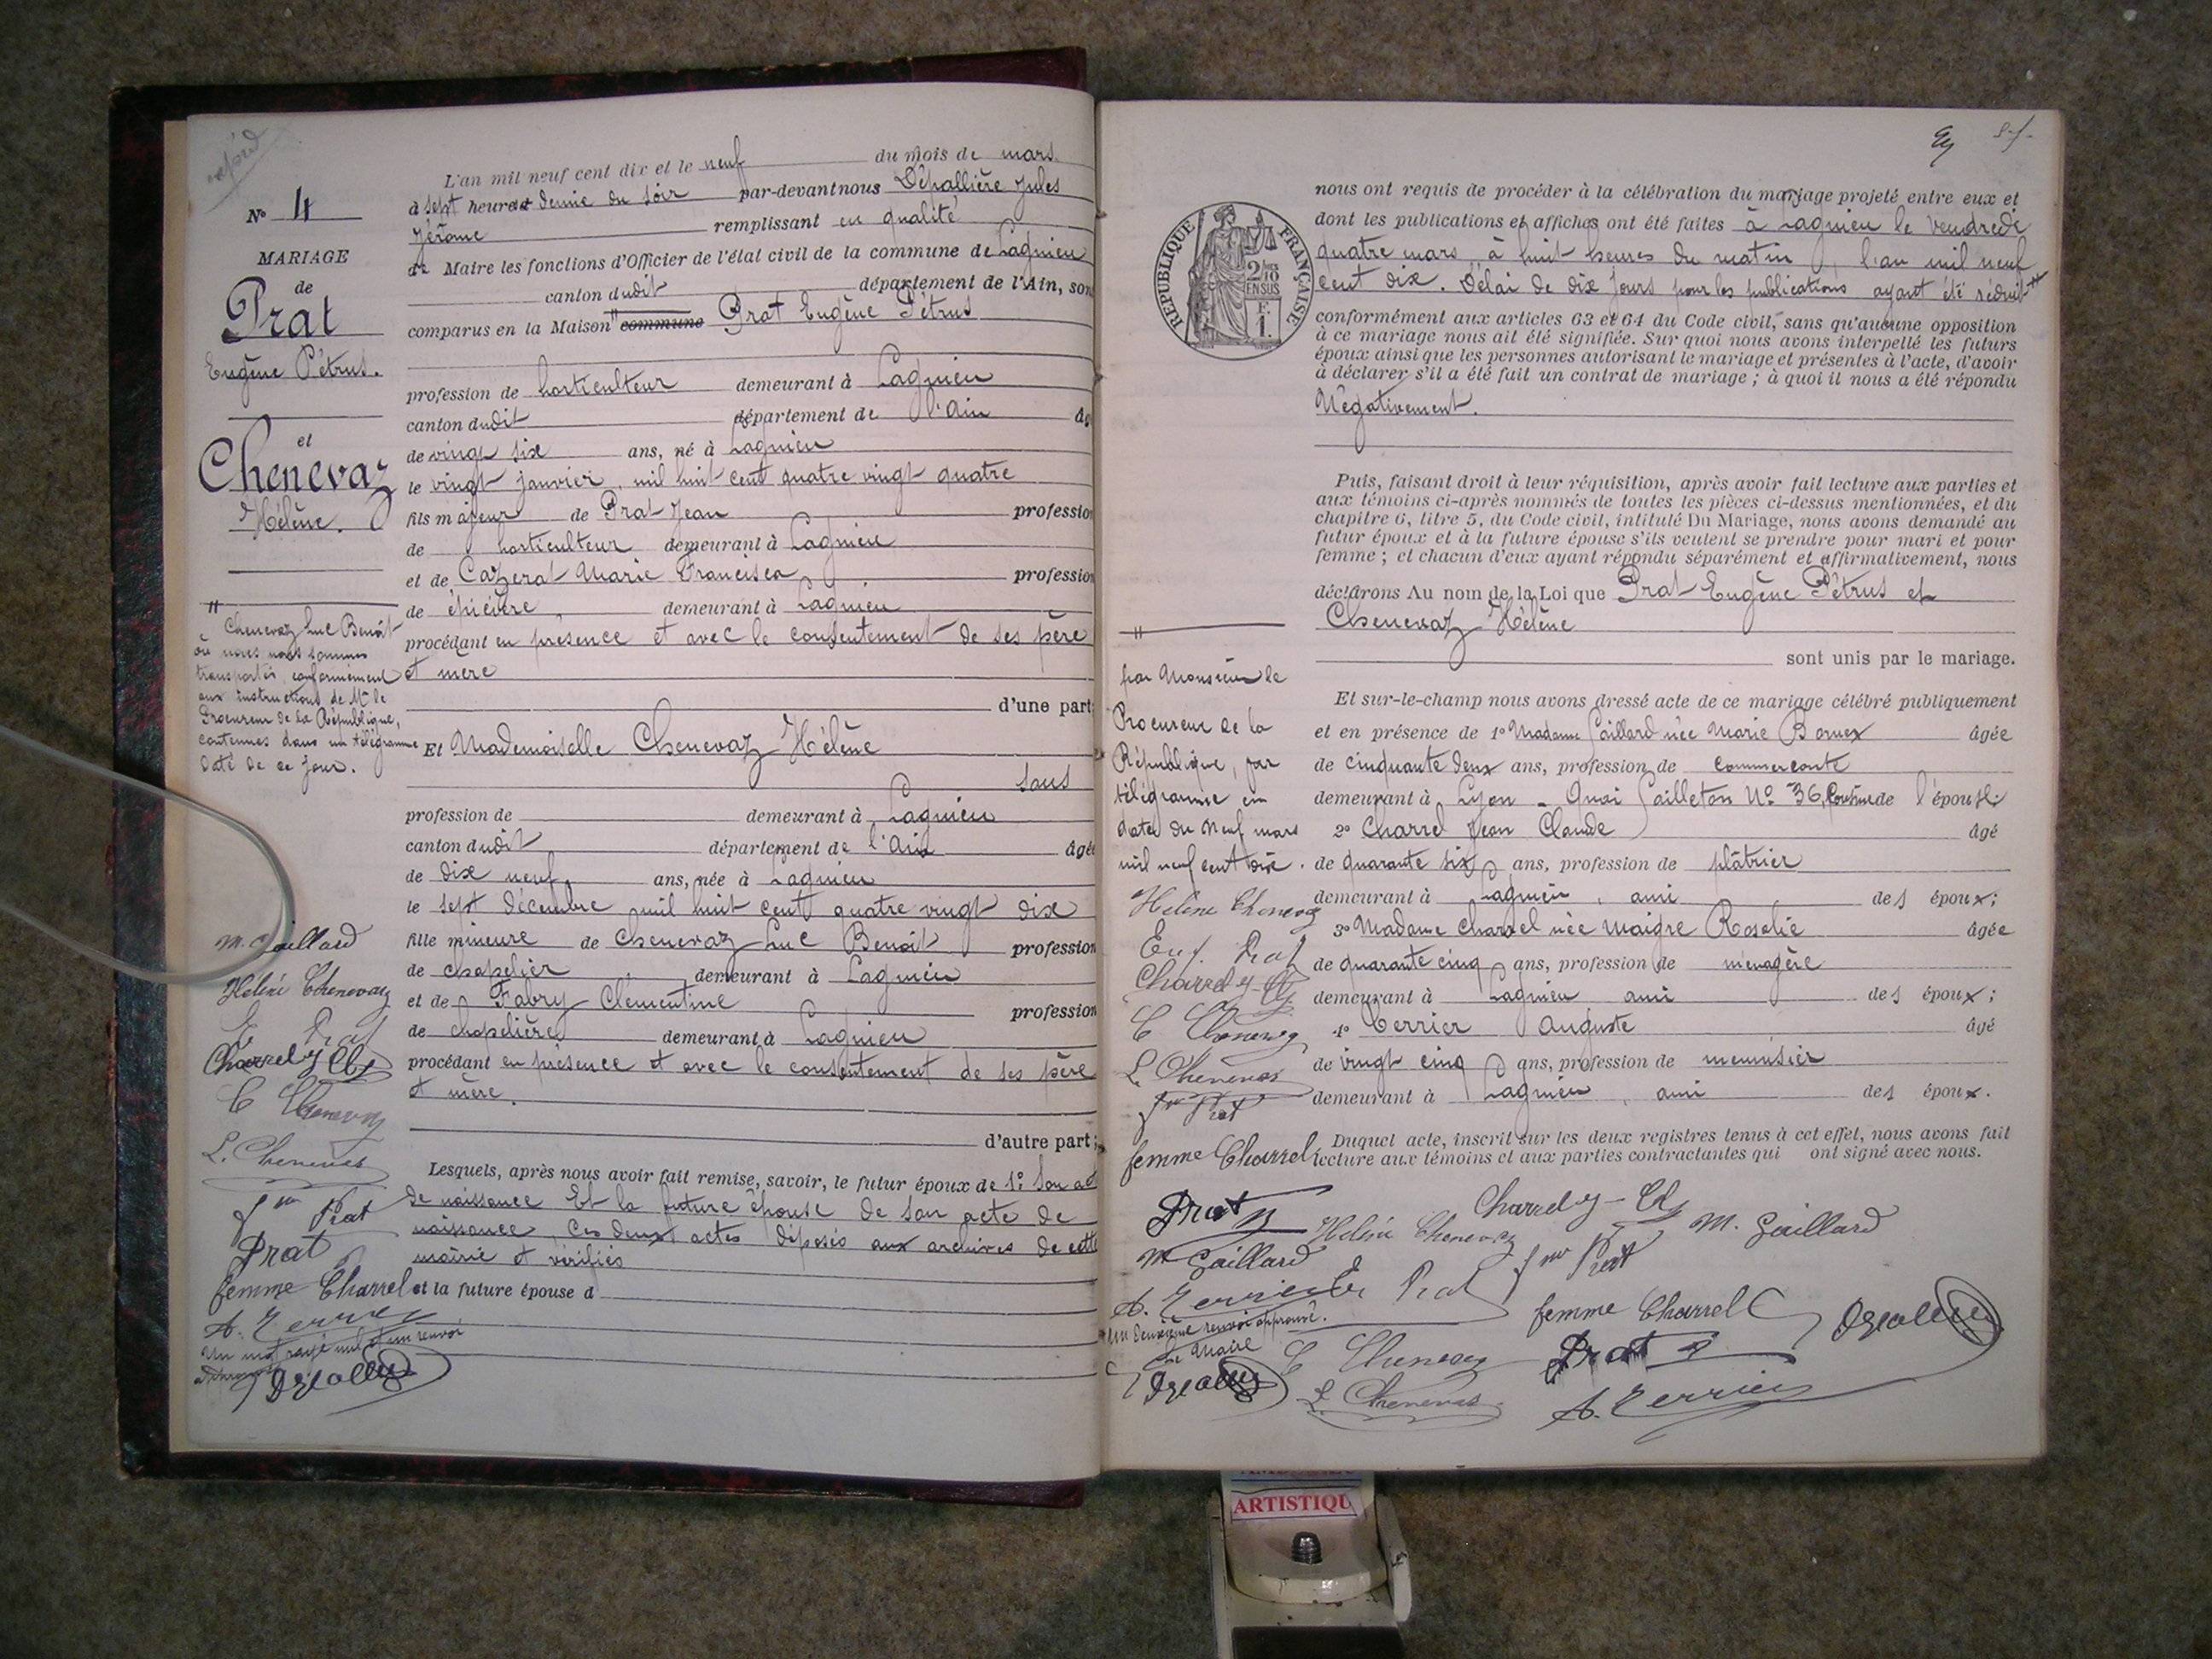 N° 4
MARIAGE
de
Prat
Eugène Pétrus.
et
Chenevaz
Hélène.
"
Chenevaz Luc Benoît
où nous nous sommes
transportés, conformément
aux instructions de Mr le
Procureur de la République,
contenues dans un télégramme
daté de ce jour.
M. Gaillard
Hélène Chenevaz
E Prat
Charrel
C Chenevaz
L. Chenevas
Prat
Prat
femme Charrel
A. Terrier
Un mot rayé nul et un renvoi
L'an mil neuf cent dix et le neuf du mois de mars
à sept heures et demie du soir par-devant nous Dépallière Jules
Jérôme remplissant en qualité
de Maire les fonctions d'Officier de l'état civil de la commune de Lagnieu
canton dudit département de l'Ain, son
comparus en la Maison " commune Prat Eugène Pétrus
profession de horticulteur demeurant à Lagnieu
canton dudit département de l'Ain âg
de vingt six ans, né à Lagnieu
le vingt janvier, mil huit cent quatre vingt quatre
fils majeur de Prat Jean profession
de horticulteur demeurant à Lagnieu
et de Cazerat Marie Francisca profession
de épicière demeurant à Lagnieu
procédant en présence et avec le consentement de ses père
et mère
d'une part;
Et Mademoiselle Chenevaz Hélène
sans
profession de demeurant à Lagnieu
canton dudit département de l'Ain âgée
de dix neuf ans, née à Lagnieu
le sept décembre mil huit cent quatre vingt dix
fille mineure de Chenevaz Luc Benoît profession
de chapelier demeurant à Lagnieu
et de Fabry Clémentine profession
de chapelière demeurant à Lagnieu
procédant en présence et avec le consentement de ses père
et mère.
d'autre part;
Lesquels, après nous avoir fait remise, savoir, le futur époux de 1° Son act
de naissance Et la future épouse de son acte de
naissance, Ces deux actes déposés aux archives de cette
mairie et vérifiés
et la future épouse d
RÉPUBLIQUE FRANÇAISE
2/10 EN SUS
F.
1.
nous ont requis de procéder à la célébration du mariage projeté entre eux et
dont les publications et affiches ont été faites à Lagnieu le vendredi
quatre mars, à huit heures du matin, l'an mil neuf
cent dix. Délai de dix jours pour les publications ayant été réduit "
conformément aux articles 63 et 64 du Code civil, sans qu'aucune opposition
à ce mariage nous ait été signifiée. Sur quoi nous avons interpellé les futurs
époux ainsi que les personnes autorisant le mariage et présentes à l'acte, d'avoir
à déclarer s'il a été fait un contrat de mariage ; à quoi il nous a été répondu
Négativement.
Puis, faisant droit à leur réquisition, après avoir fait lecture aux parties et
aux témoins ci-après nommés de toutes les pièces ci-dessus mentionnées, et du
chapitre 6, titre 5, du Code civil, intitulé Du Mariage, nous avons demandé au
futur époux et à la future épouse s'ils veulent se prendre pour mari et pour
femme ; et chacun d'eux ayant répondu séparément et affirmativement, nous
déclarons Au nom de la Loi que Prat Eugène Pétrus et
Chenevaz Hélène
sont unis par le mariage.
Et sur-le-champ nous avons dressé acte de ce mariage célébré publiquement
et en présence de 1° Madame Gaillard née Marie Bornex âgée
de cinquante deux ans, profession de commerçante
demeurant à Lyon - Quai Gailleton N° 36, Cousine de l'époux;
2° Charrel Jean Claude âgé
de quarante six ans, profession de plâtrier
demeurant à Lagnieu, ami des époux;
3° Madame Charrel née Maigre Rosalie âgée
de quarante cinq ans, profession de ménagère
demeurant à Lagnieu ami des époux;
4° Terrier Auguste âgé
de vingt cinq ans, profession de menuisier
demeurant à Lagnieu, ami des époux.
Duquel acte, inscrit sur les deux registres tenus à cet effet, nous avons fait
lecture aux témoins et aux parties contractantes qui ont signé avec nous.
"
par Monsieur le
Procureur de la
République, par
télégramme en
date du neuf mars
mil neuf cent dix.
Hélène Chenevaz
Eug. Prat
Charrel
C Chenevaz
L. Chenevas
Prat
femme Charrel
Prat
Hélène Chenevaz
Charrel
M. Gaillard
M Gaillard
Prat
A. Terrier
E Prat
femme Charrel
Un deuxième renvoi approuvé.
Le Maire
C Chenevaz
Prat
L. Chenevas
A. Terrier
ARTISTIQU